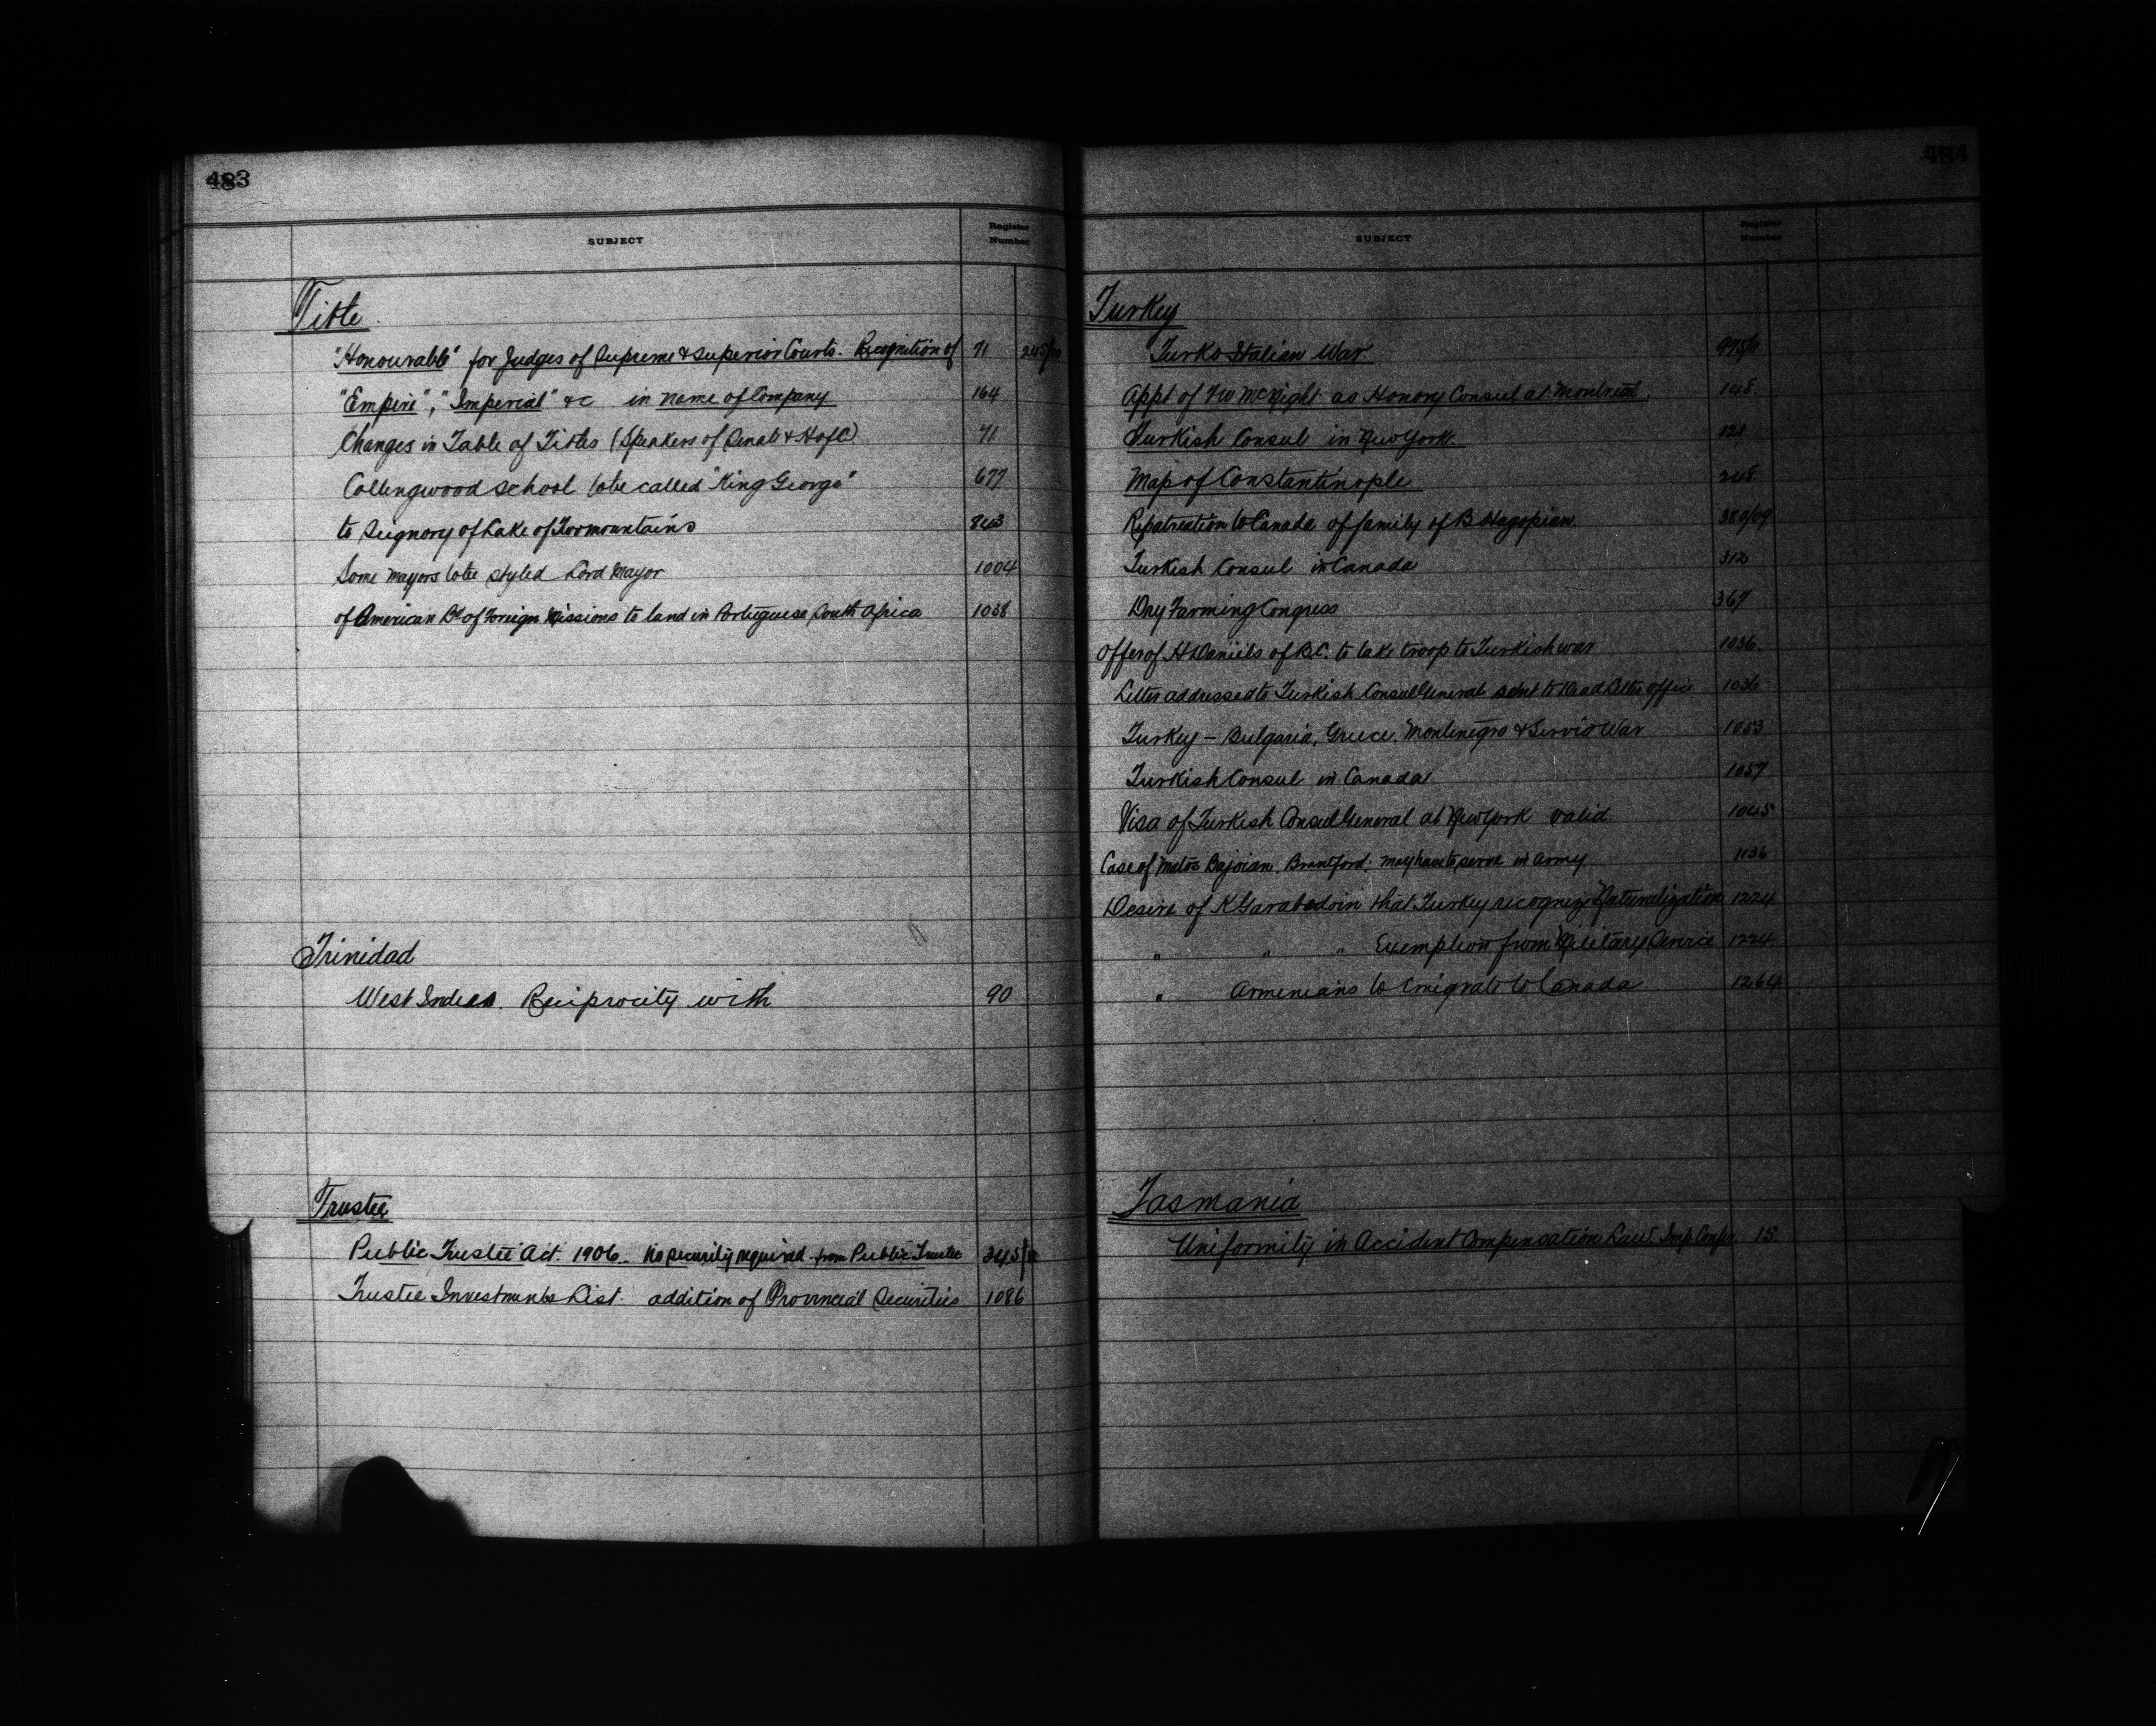 483
SUBJECT Register Number
Title
"Honourable" for Judges of Supreme & Superior Courts. Recognition of 71 245/10
"Empire", "Imperial" &c in name of Company 164
Changes in Table of Titles (Speakers of Senate & HofC) 71
Collingwood School to be called "King George" 677
to Seignory of Lake of Two mountains 843
Some mayors to be styled Lord Mayor 1004
of American Bd of Foreign Missions to land in Portuguese South Africa 1038
Trinidad
West Indies. Reciprocity with 90
Trustee
Public Trustee Act. 1906. No security required from Public Trustee 345
Trustee Investments List. addition of Provincial Securities 1086
484
SUBJECT Register Number
Turkey
Turko Italian War 975/11
Appt of McKight as Honory Consul at Montreal. 148
Turkish Consul in New York 121
Map of Constantinople 248
Repatriation to Canada of family of B Hagopian. 380/09
Turkish Consul in Canada 312
Dry Farming Congress 367
Offer of H Daniels of B.C. to take troop to Turkish war 1036
Letter addressed to Turkish Consul General sent to Dead Letter office 1036
Turkey – Bulgaria, Greece, Montenegro & Servia War 1053
Turkish Consul in Canada 1057
Visa of Turkish Consul General at New York valid 1045
Case of Bajoian, Brantford: may have to serve in Army 1136
Desire of K Garabedoin that Turkey recognize Naturalization 1224
" " " Exemption from Military Service 1224
" Armenians to Emigrate to Canada 1264
Tasmania
Uniformity in Accident Compensation Law. Imp Confce 15